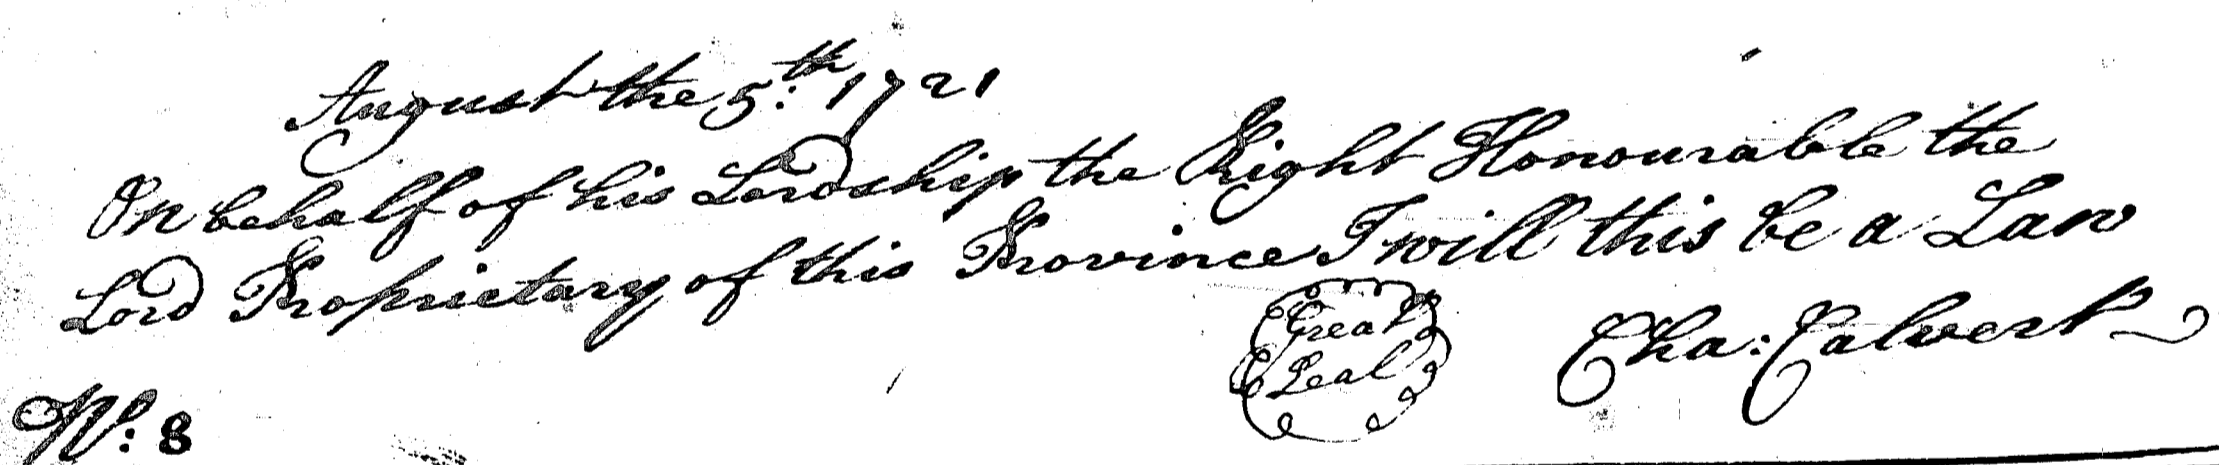 August the 5:th 1721
On behalf of his Lordship the Right Honourable the
Lord Proprietary of this Province I will this be a Law
Great
Seal
Cha: Calvert
No: 8